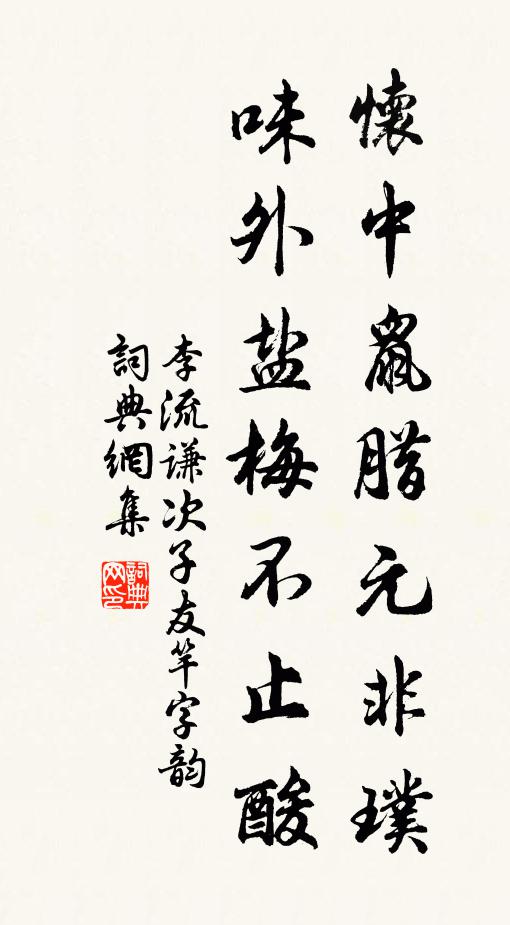 懷中鼠腊元非璞
味外盐梅不止酸
李流谦次子友竿字韵
詞典網集
詞典网印